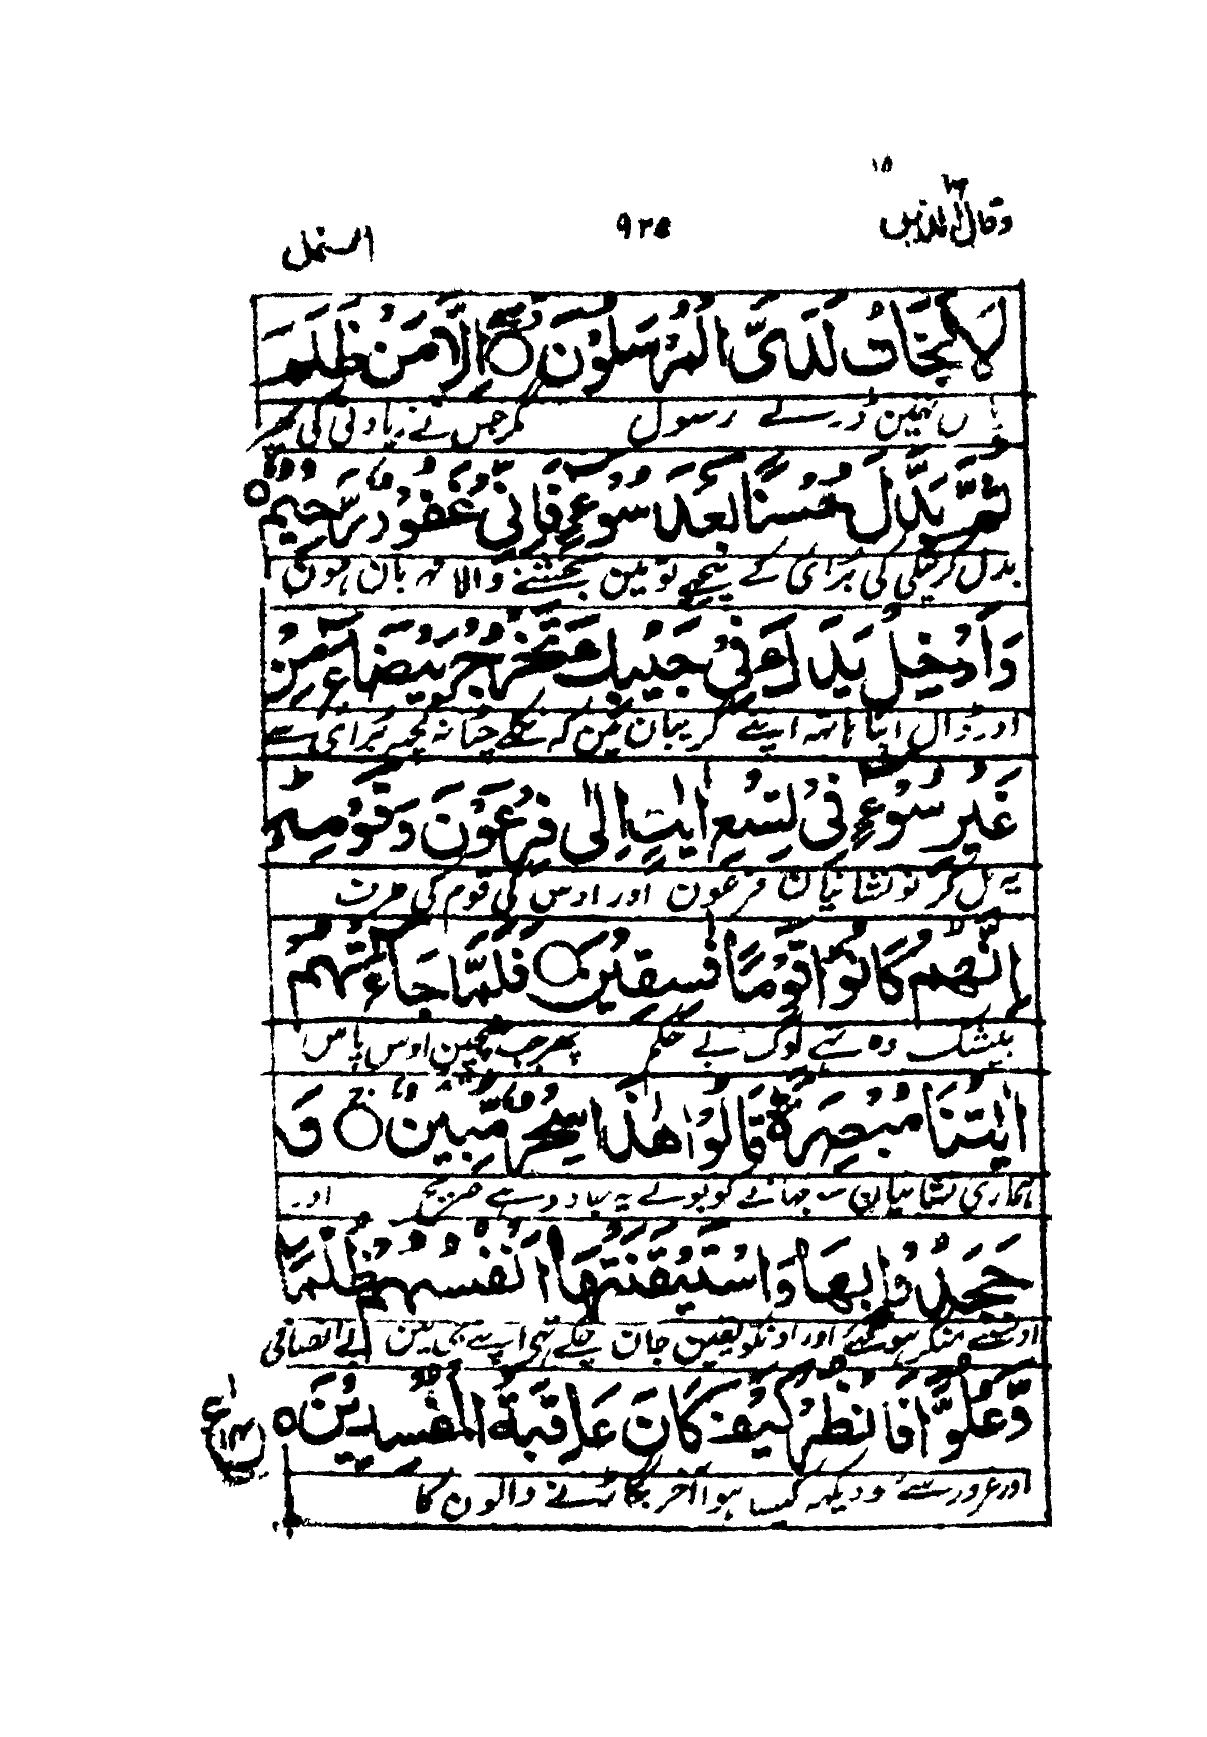 ١٥
وقال الذين ٩٢٥ النمل
لَا يَخَافُ لَدَيَّ الْمُرْسَلُوْنَ ۝ اِلَّا مَنْ ظَلَمَ
نہین ڈرتے رسول مگر جس نے زیادتی کی پھر
ثُمَّ بَدَّلَ حُسْنًا بَعْدَ سُوْٓءٍ فَاِنِّيْ غَفُوْرٌ رَّحِيْمٌ ۝
بدل کر نیکی کی بُرائی کے پیچھے تو مین بخشنے والا مہربان ہون
وَاَدْخِلْ يَدَكَ فِيْ جَيْبِكَ تَخْرُجْ بَيْضَآءَ مِنْ
اور ڈال اپنا ہاتھ اپنے گریبان مین کہ نکلے چٹا نہ کچھ بُرائی سے
غَيْرِ سُوْٓءٍ فِيْ تِسْعِ اٰيٰتٍ اِلٰى فِرْعَوْنَ وَقَوْمِهٖ
یہ مل کر نو نشانیان فرعون اور اوس کی قوم کی طرف
اِنَّهُمْ كَانُوْا قَوْمًا فٰسِقِيْنَ ۝ فَلَمَّا جَآءَتْهُمْ
بیشک وہ تھے لوگ بے حکم پھر جب پہنچین اوس پاس
اٰيٰتُنَا مُبْصِرَةً قَالُوْا هٰذَا سِحْرٌ مُّبِيْنٌ ۝ وَ
ہماری نشانیان سمجھانے کو بولے یہ جادو ہے صریح اور
جَحَدُوْا بِهَا وَاسْتَيْقَنَتْهَآ اَنْفُسُهُمْ ظُلْمًا
اون سے منکر ہو گئے اور اونکو یقین جان چکے تھے اپنے جی مین بے انصافی
وَّعُلُوًّا فَانْظُرْ كَيْفَ كَانَ عَاقِبَةُ الْمُفْسِدِيْنَ ۝
اور غرور سے سو دیکھ کیسا ہوا آخر بگاڑنے والون کا